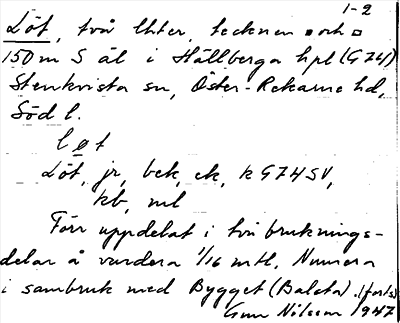 1-2
Löt, två lhter, tecknen □ och □
150 m S äl i Hällberga hpl (G74)
Stenkvista sn, Öster-Rekarne hd,
Söd l.
løt
Löt, jr, bek, ek, k G74SV,
kb, ml
Förr uppdelat i två bruknings-
delar å vardera 1/16 mtl. Numera
i sambruk med Bygget (Balsta). (forts)
Gun Nilsson 1947